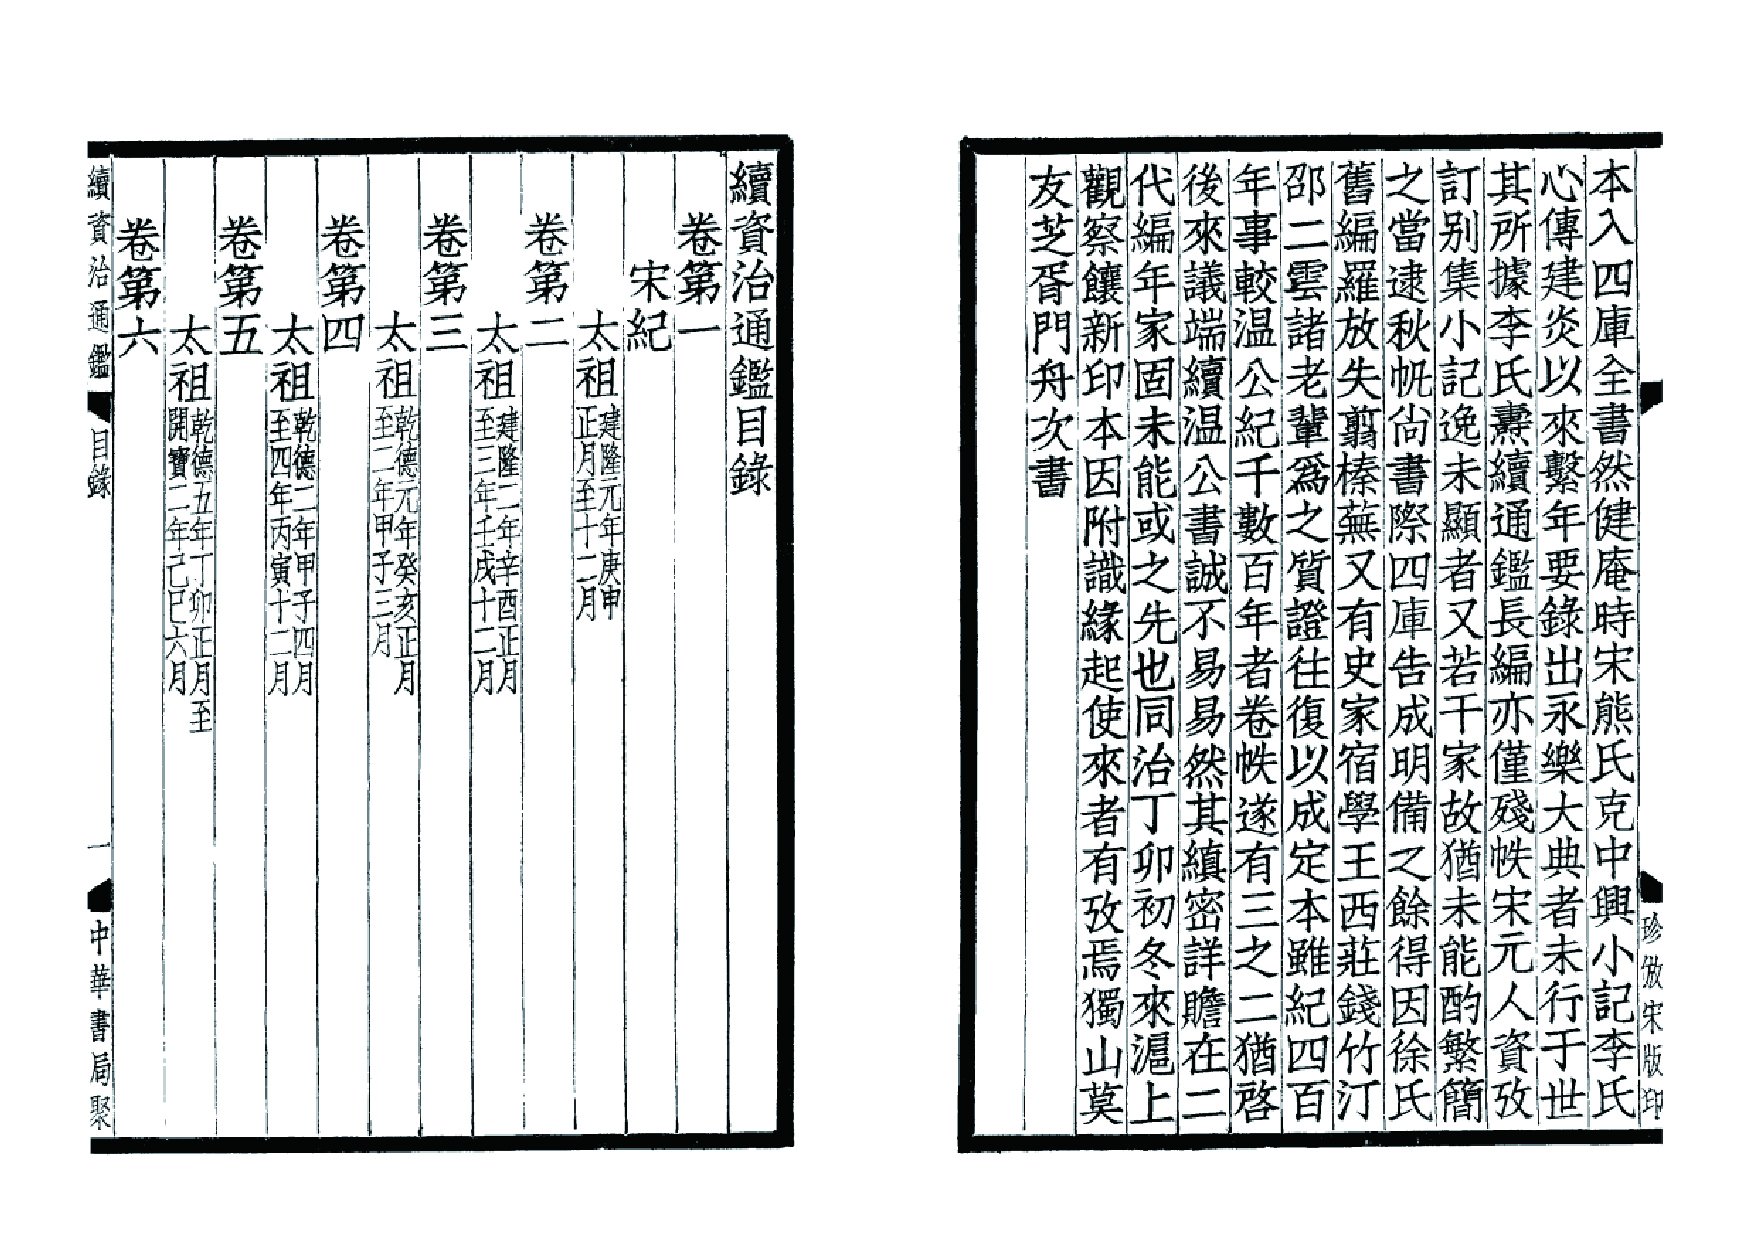 本入四庫全書然健庵時宋熊氏克中興小記李氏
心傳建炎以來繫年要錄出永樂大典者未行于世
其所據李氏燾續通鑑長編亦僅殘帙宋元人資攷
訂别集小記逸未顯者又若干家故猶未能酌繁簡
之當逮秋帆尙書際四庫告成明備之餘得因徐氏
舊編羅放失翦榛蕪又有史家宿學王西莊錢竹汀
邵二雲諸老輩爲之質證往復以成定本雖紀四百
年事較温公紀千數百年者卷帙遂有三之二猶啓
後來議端續温公書誠不易易然其縝密詳贍在二
代編年家固未能或之先也同治丁卯初冬來滬上
觀察饟新印本因附識緣起使來者有攷焉獨山莫
友芝胥門舟次書
珍倣宋版印
續資治通鑑目錄
卷第一
宋紀
太祖 建隆元年庚申
正月至十二月
卷第二
太祖 建隆二年辛酉正月
至三年壬戌十二月
卷第三
太祖 乾德元年癸亥正月
至二年甲子三月
卷第四
太祖 乾德二年甲子四月
至四年丙寅十二月
卷第五
太祖 乾德五年丁卯正月至
開寶二年己巳六月
卷第六
續資治通鑑 目錄 一 中華書局聚